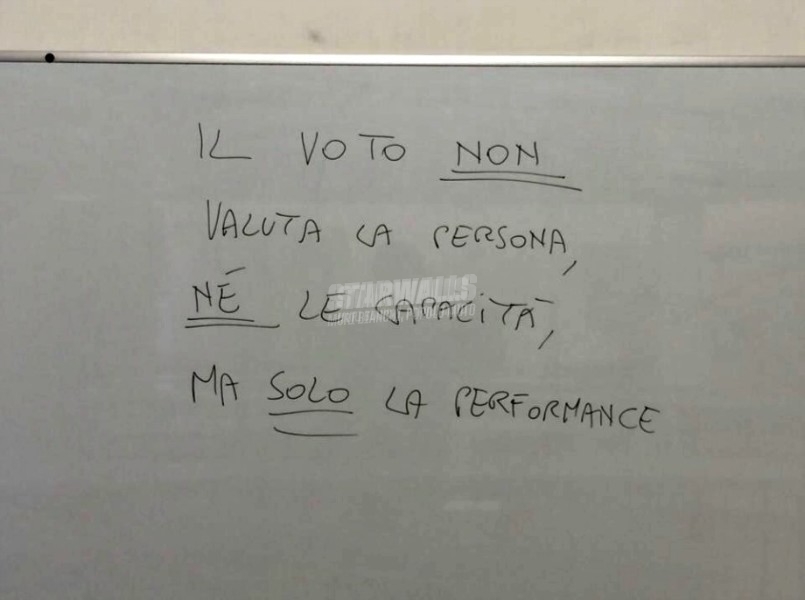 IL VOTO NON
VALUTA LA PERSONA,
NÉ LE CAPACITÀ,
MA SOLO LA PERFORMANCE
STARWALLS